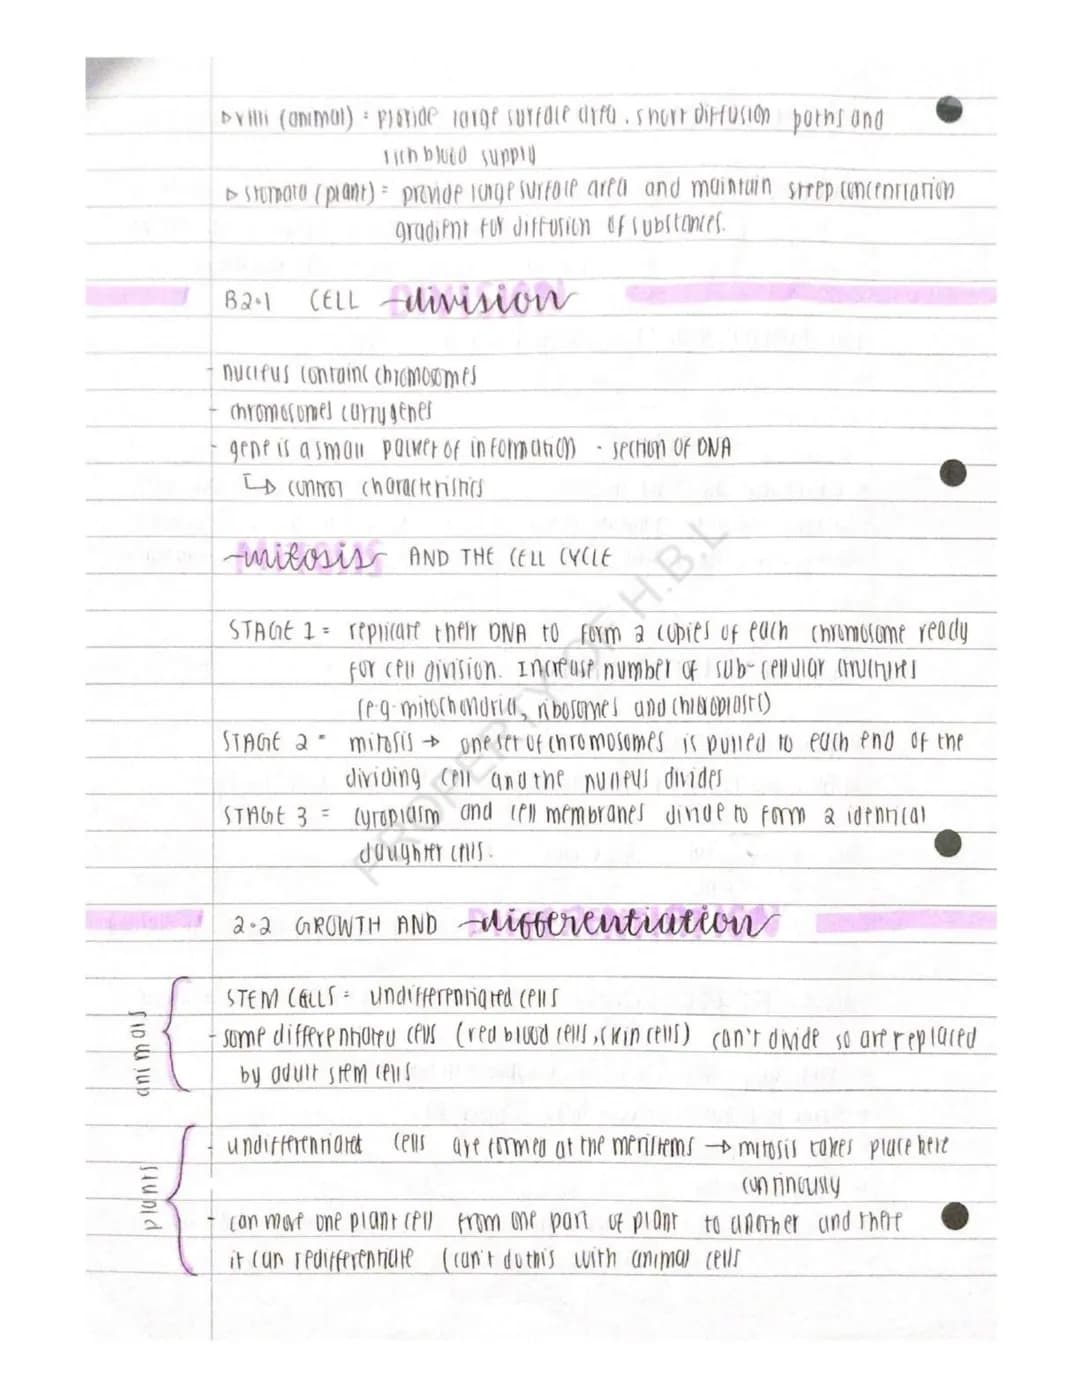 ▷ villi (animal) = provide large surface area, short diffusion paths and
rich blood supply
▷ stomata (plant) = provide large surface area and maintain steep concentration
gradient for diffusion of substances.
B2.1 CELL division
- nucleus contains chromosomes
- chromosomes carry genes
- gene is a small packet of information - section of DNA
↳ control characteristics
mitosis AND THE CELL CYCLE
STAGE 1 = replicate their DNA to form 2 copies of each chromosome ready
for cell division. Increase number of sub-cellular structures
(e.g. mitochondria, ribosomes and chloroplasts)
STAGE 2 = mitosis → one set of chromosomes is pulled to each end of the
dividing cell and the nucleus divides
STAGE 3 = cytoplasm and cell membranes divide to form 2 identical
daughter cells.
2.2 GROWTH AND differentiation
animals
STEM CELLS = undifferentiated cells
- some differentiated cells (red blood cells, skin cells) can't divide so are replaced
by adult stem cells
plants
- undifferentiated cells are formed at the meristems → mitosis takes place here
continously
- can move one plant cell from one part of plant to another and there
it can redifferentiate (can't do this with animal cells
PROPERTY OF H.B.L